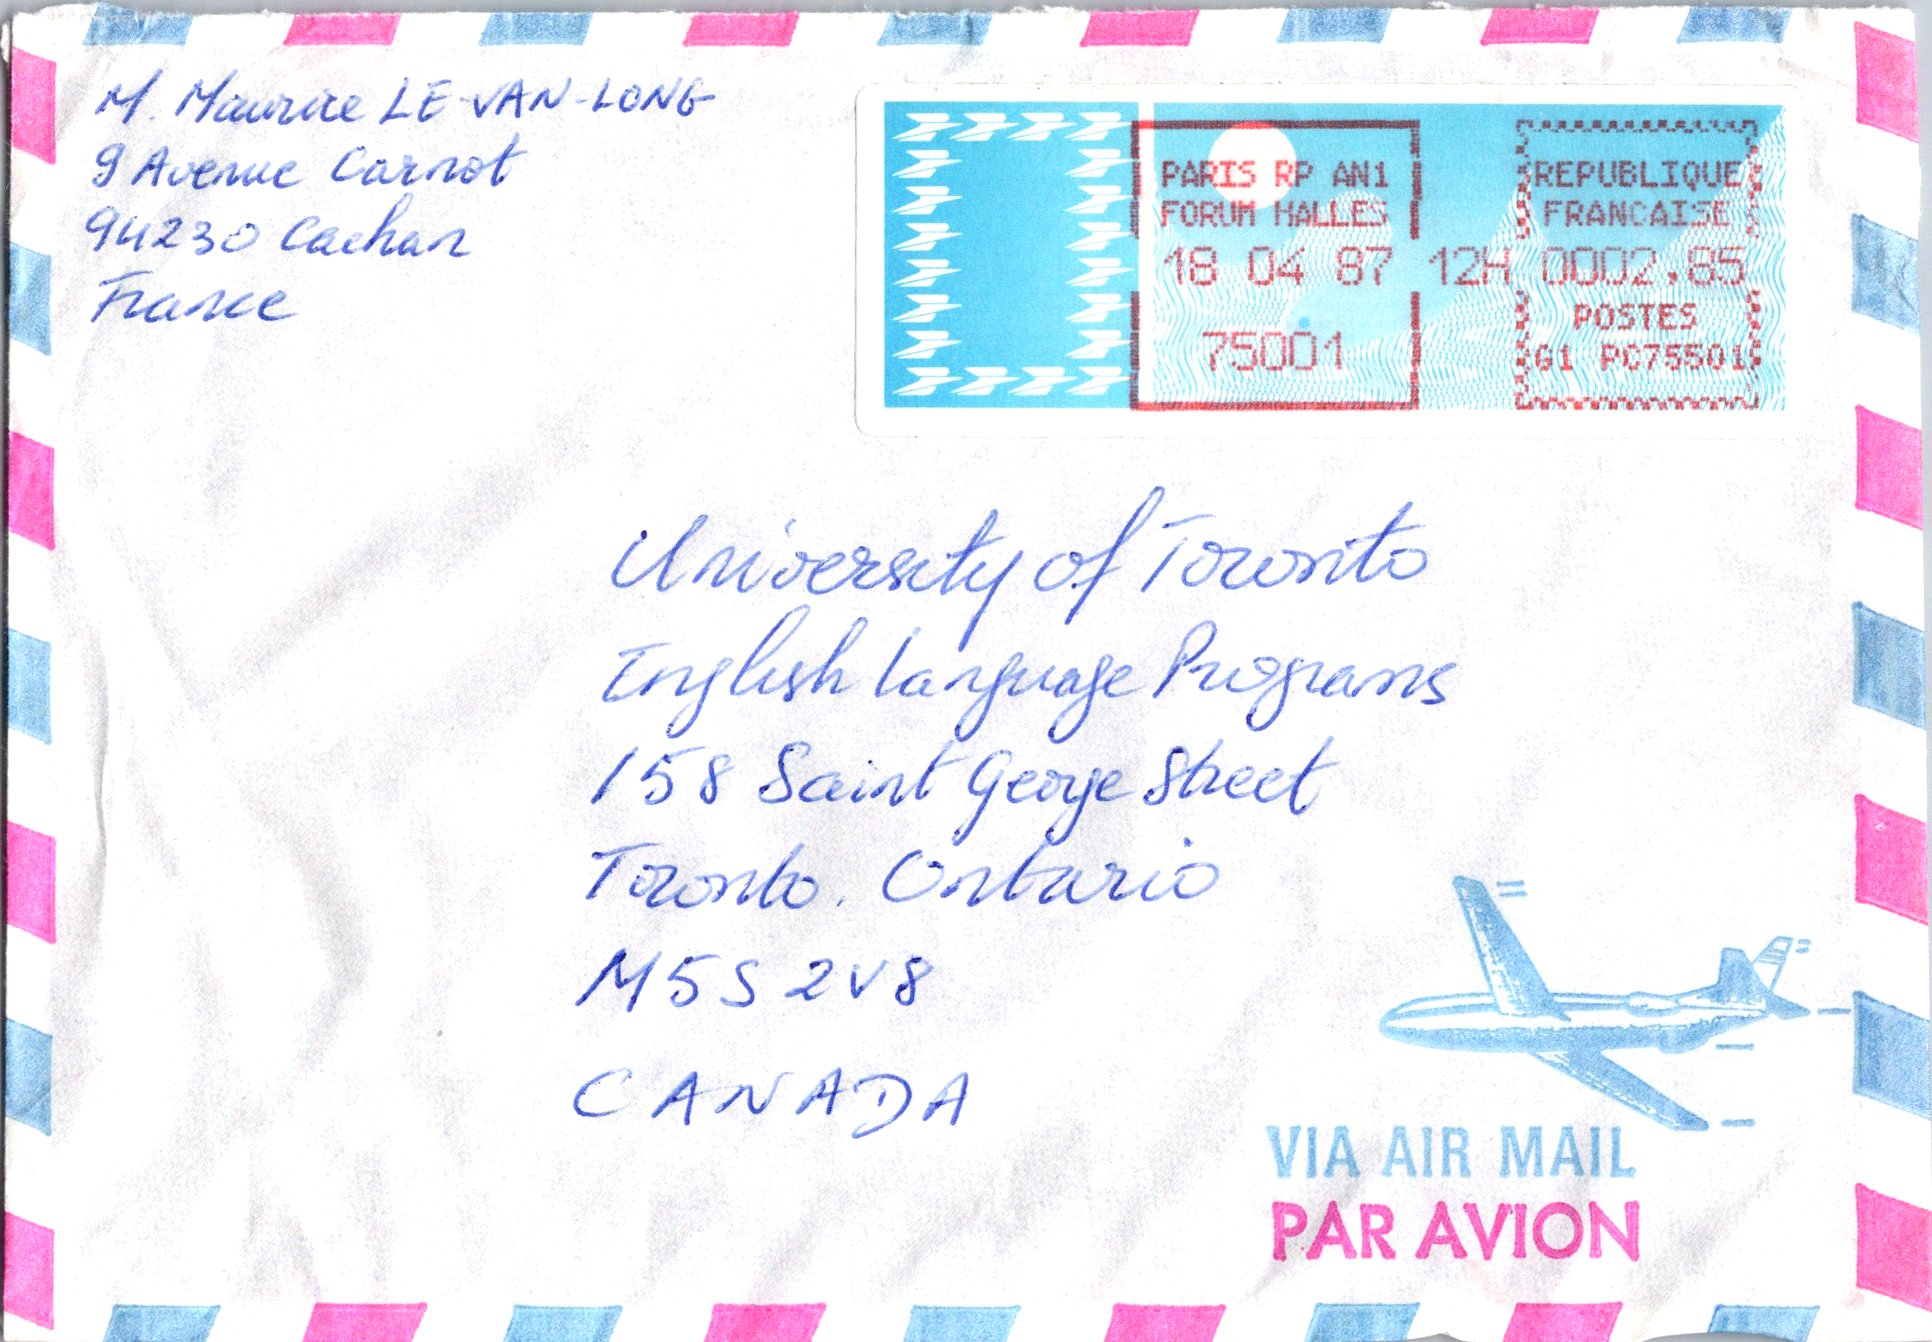 M. Maurice LE-VAN-LONG
9 Avenue Carnot
94230 Cachan
France
PARIS RP AN1
FORUM HALLES
18 04 87 12H
75001
REPUBLIQUE
FRANCAISE
0002,85
POSTES
G1 PC75501
University of Toronto
English Language Programs
158 Saint George Street
Toronto. Ontario
M5S 2V8
CANADA
VIA AIR MAIL
PAR AVION